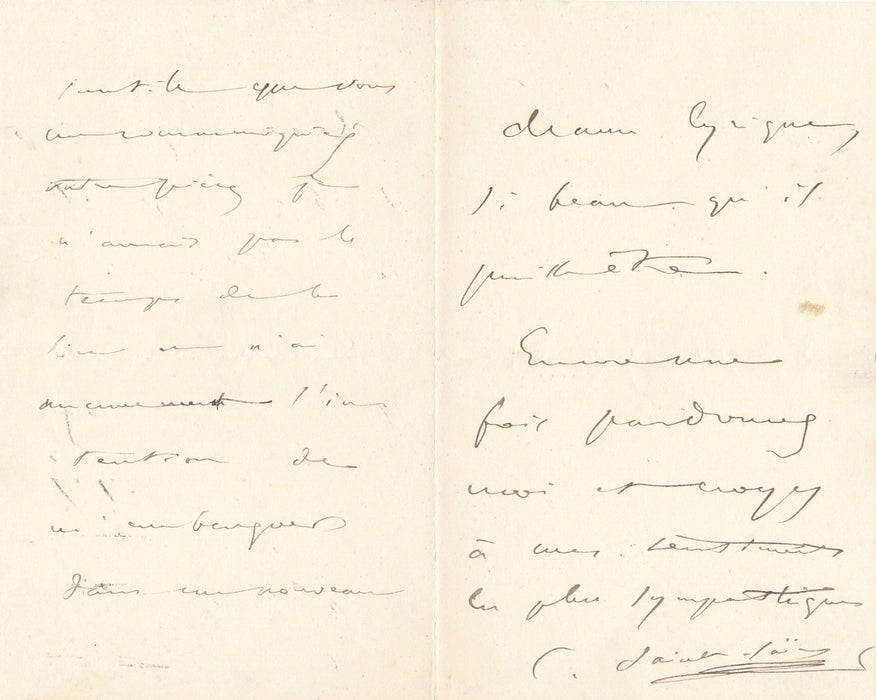 inutile que vous
me communiquiez
votre pièce, je
n'aurais pas le
temps de la
lire et n'ai
aucunement l'in
tention de
m'embarquer
dans un nouveau
drame lyrique,
si beau qu'il
puisse être.
Encore une
fois pardonnez
moi et croyez
à mes sentiments
les plus sympathiques
C. Saint-Saëns